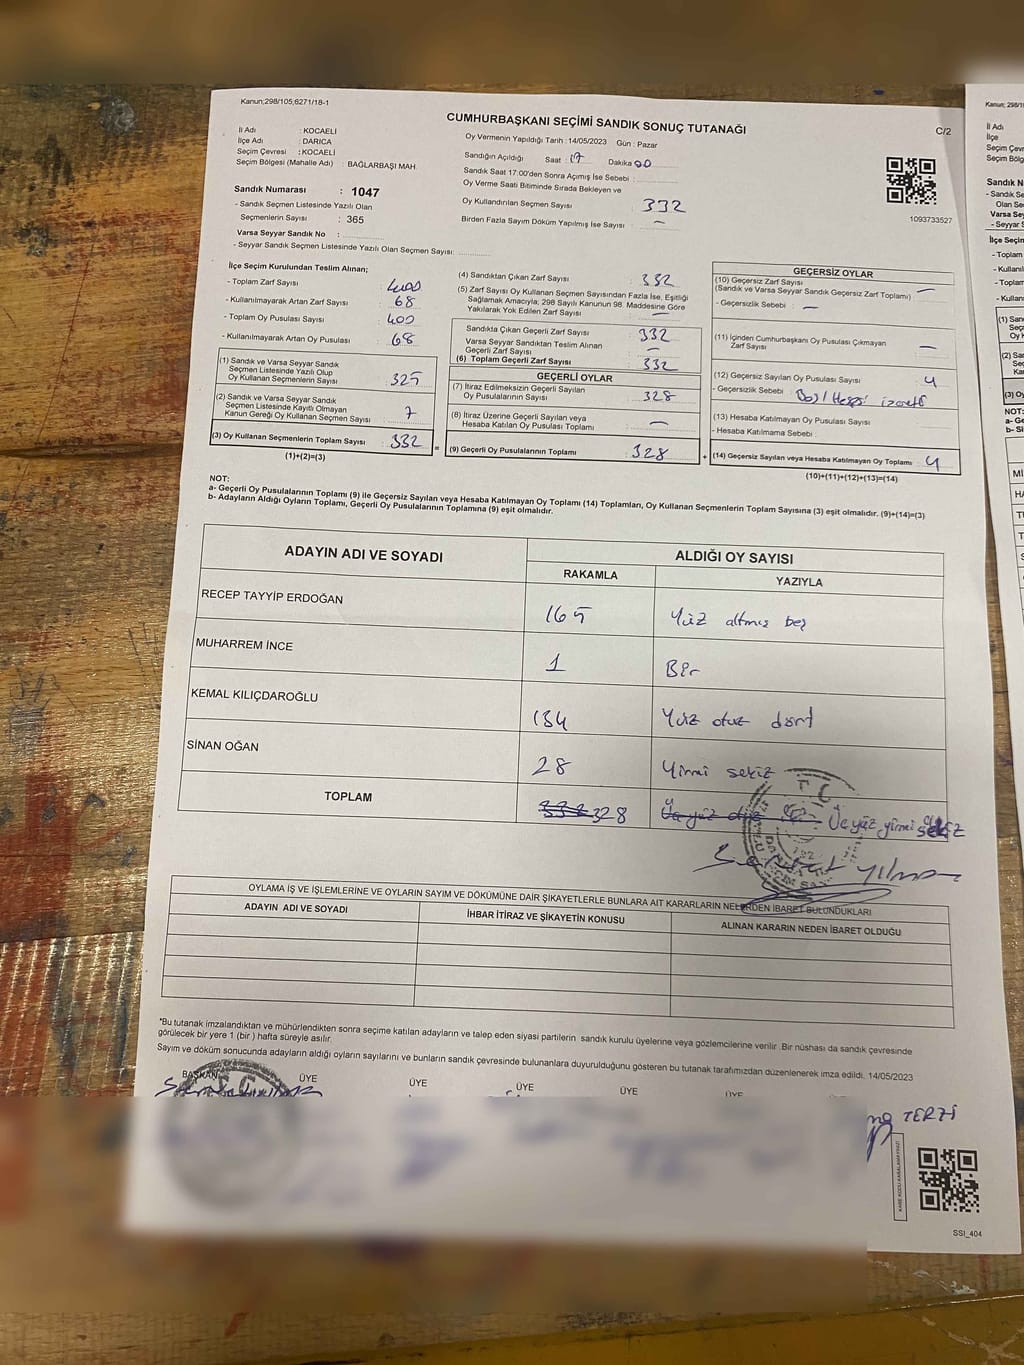 Kanun;298/105,6271/18-1
CUMHURBAŞKANI SEÇİMİ SANDIK SONUÇ TUTANAĞI
C/2
İl Adı : KOCAELİ
İlçe Adı : DARICA
Seçim Çevresi : KOCAELİ
Seçim Bölgesi (Mahalle Adı) : BAĞLARBAŞI MAH.
Sandık Numarası : 1047
- Sandık Seçmen Listesinde Yazılı Olan
Seçmenlerin Sayısı : 365
Varsa Seyyar Sandık No :
- Seyyar Sandık Seçmen Listesinde Yazılı Olan Seçmen Sayısı:
Oy Vermenin Yapıldığı Tarih : 14/05/2023 Gün : Pazar
Sandığın Açıldığı Saat : 17 Dakika 00
Sandık Saat 17:00'den Sonra Açımış İse Sebebi :
Oy Verme Saati Bitiminde Sırada Bekleyen ve
Oy Kullandırılan Seçmen Sayısı : 332
Birden Fazla Sayım Döküm Yapılmış İse Sayısı : -
1093733527
İlçe Seçim Kurulundan Teslim Alınan;
- Toplam Zarf Sayısı : 400
- Kullanılmayarak Artan Zarf Sayısı : 68
- Toplam Oy Pusulası Sayısı : 400
- Kullanılmayarak Artan Oy Pusulası : 68
(1) Sandık ve Varsa Seyyar Sandık
Seçmen Listesinde Yazılı Olup
Oy Kullanan Seçmenlerin Sayısı : 325
(2) Sandık ve Varsa Seyyar Sandık
Seçmen Listesinde Kayıtlı Olmayan
Kanun Gereği Oy Kullanan Seçmen Sayısı : 7
(3) Oy Kullanan Seçmenlerin Toplam Sayısı : 332
(1)+(2)=(3)
(4) Sandıktan Çıkan Zarf Sayısı : 332
(5) Zarf Sayısı Oy Kullanan Seçmen Sayısından Fazla İse, Eşitliği
Sağlamak Amacıyla; 298 Sayılı Kanunun 98. Maddesine Göre
Yakılarak Yok Edilen Zarf Sayısı : -
Sandıkta Çıkan Geçerli Zarf Sayısı : 332
Varsa Seyyar Sandıktan Teslim Alınan
Geçerli Zarf Sayısı : -
(6) Toplam Geçerli Zarf Sayısı : 332
GEÇERLİ OYLAR
(7) İtiraz Edilmeksizin Geçerli Sayılan
Oy Pusulalarının Sayısı : 328
(8) İtiraz Üzerine Geçerli Sayılan veya
Hesaba Katılan Oy Pusulaları Toplamı : -
(9) Geçerli Oy Pusulalarının Toplamı : 328
GEÇERSİZ OYLAR
(10) Geçersiz Zarf Sayısı
(Sandık ve Varsa Seyyar Sandık Geçersiz Zarf Toplamı) : -
- Geçersizlik Sebebi : -
(11) İçinden Cumhurbaşkanı Oy Pusulası Çıkmayan
Zarf Sayısı : -
(12) Geçersiz Sayılan Oy Pusulası Sayısı : 4
- Geçersizlik Sebebi :
(13) Hesaba Katılmayan Oy Pusulası Sayısı :
- Hesaba Katılmama Sebebi :
(14) Geçersiz Sayılan veya Hesaba Katılmayan Oy Toplamı : 4
(10)+(11)+(12)+(13)=(14)
NOT:
a- Geçerli Oy Pusulalarının Toplamı (9) ile Geçersiz Sayılan veya Hesaba Katılmayan Oy Toplamı (14) Toplamları, Oy Kullanan Seçmenlerin Toplam Sayısına (3) eşit olmalıdır. (9)+(14)=(3)
b- Adayların Aldığı Oyların Toplamı, Geçerli Oy Pusulalarının Toplamına (9) eşit olmalıdır.
ADAYIN ADI VE SOYADI
ALDIĞI OY SAYISI
RAKAMLA YAZIYLA
RECEP TAYYİP ERDOĞAN 165 Yüz altmış beş
MUHARREM İNCE 1 Bir
KEMAL KILIÇDAROĞLU 134 Yüz otuz dört
SİNAN OĞAN 28 Yirmi sekiz
TOPLAM 332 328 Üçyüz yirmi sekiz
T C
OYLAMA İŞ VE İŞLEMLERİNE VE OYLARIN SAYIM VE DÖKÜMÜNE DAİR ŞİKAYETLERLE BUNLARA AİT KARARLARIN NELERDEN İBARET BULUNDUKLARI
ADAYIN ADI VE SOYADI
İHBAR İTİRAZ VE ŞİKAYETİN KONUSU
ALINAN KARARIN NEDEN İBARET OLDUĞU
*Bu tutanak imzalandıktan ve mühürlendikten sonra seçime katılan adayların ve talep eden siyasi partilerin sandık kurulu üyelerine veya gözlemcilerine verilir. Bir nüshası da sandık çevresinde
görülecek bir yere 1 (bir ) hafta süreyle asılır.
Sayım ve döküm sonucunda adayların aldığı oyların sayılarını ve bunların sandık çevresinde bulunanlara duyurulduğunu gösteren bu tutanak tarafımızdan düzenlenerek imza edildi. 14/05/2023
BAŞKAN ÜYE ÜYE ÜYE ÜYE ÜYE
TERZİ
SSI_404